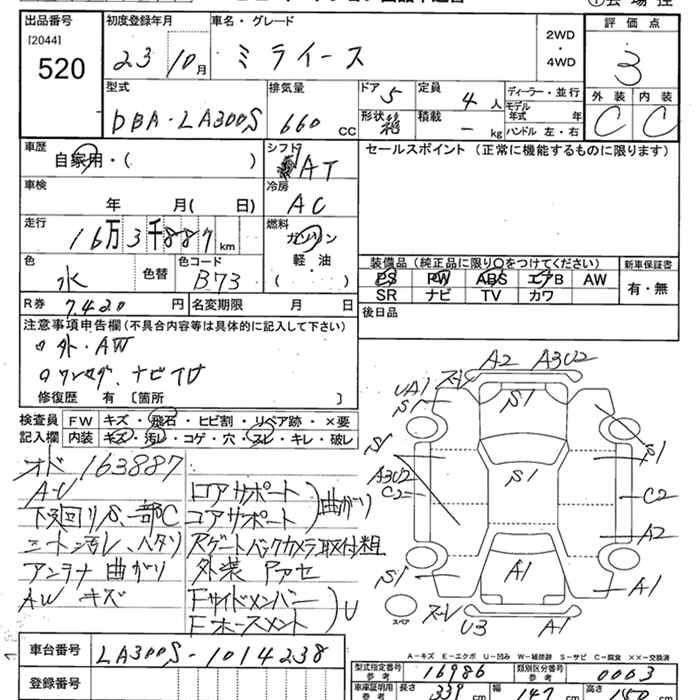 出品番号 初度登録年月 車名・グレード 評価点
[2044]
520
23 10月 ミライース 2WD・4WD 3
型式 排気量 ドア 5 定員 4人 ディーラー・並行 外装 内装
DBA・LA300S 660 CC 形状 積載 - kg モデル年式 年 C C
ハンドル 左・右
車歴 シフト AT セールスポイント(正常に機能するものに限ります)
自家用・( )
車検 冷房
年 月( 日) AC
走行 燃料
16万3千887km ガソリン
色 色替 色コード 軽・油 装備品(純正品に限り○をつけてください) 新車保証書
水 B73 ( ) PS PW ABS エアB AW 有・無
SR ナビ TV カワ
R券 7,420円 名変期限 月 日 後日品
注意事項申告欄(不具合内容等は具体的に記入して下さい)
外・AW
ナビ
修復歴 有 [箇所 ]
検査員 FW キズ・飛石・ヒビ割・リペア跡・×要
記入欄 内装 キズ・汚レ・コゲ・穴・スレ・キレ・破レ
A2 A3U2
UA1 S1 S1
S1 S1 S1
A3U2 C2 C2
A2
S1 A1 A1
U3 A1
スペア
オド 163887
下回りS、一部C
シート汚レ、ヘタリ
アンテナ曲がり
AW キズ
ロアサポート
コアサポート 曲がり
Rゲートバックカメラ取付粗
外装
Fサイドメンバー
U
A-キズ E-エクボ U-凹み W-補修跡 S-サビ C-腐食 ××-交換済
車台番号 LA300S-1014238
登録番号
型式指定番号 参考 16986 類別区分番号 参考 0063
車庫証明用 参考 長さ 339cm 幅 147cm 高さ 150cm